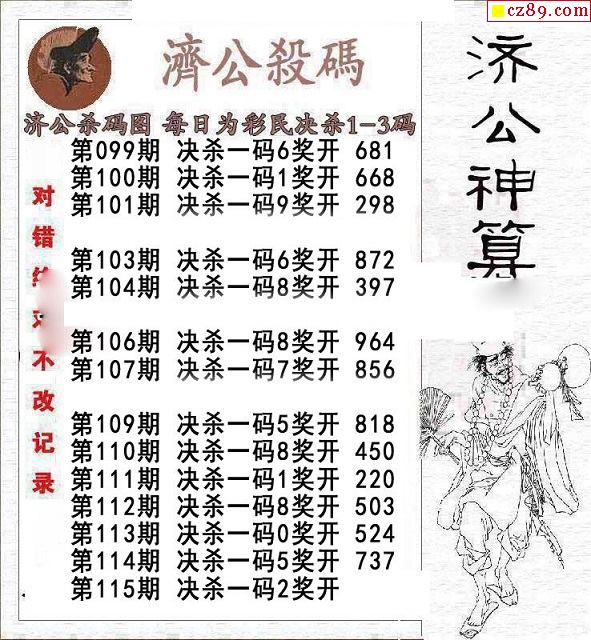 cz89.com
濟公殺碼
济公杀码图 每日为彩民决杀1-3码
第099期 决杀一码6奖开 681
第100期 决杀一码1奖开 668
第101期 决杀一码9奖开 298
第103期 决杀一码6奖开 872
第104期 决杀一码8奖开 397
第106期 决杀一码8奖开 964
第107期 决杀一码7奖开 856
第109期 决杀一码5奖开 818
第110期 决杀一码8奖开 450
第111期 决杀一码1奖开 220
第112期 决杀一码8奖开 503
第113期 决杀一码0奖开 524
第114期 决杀一码5奖开 737
第115期 决杀一码2奖开
对错不改记录
济公神算